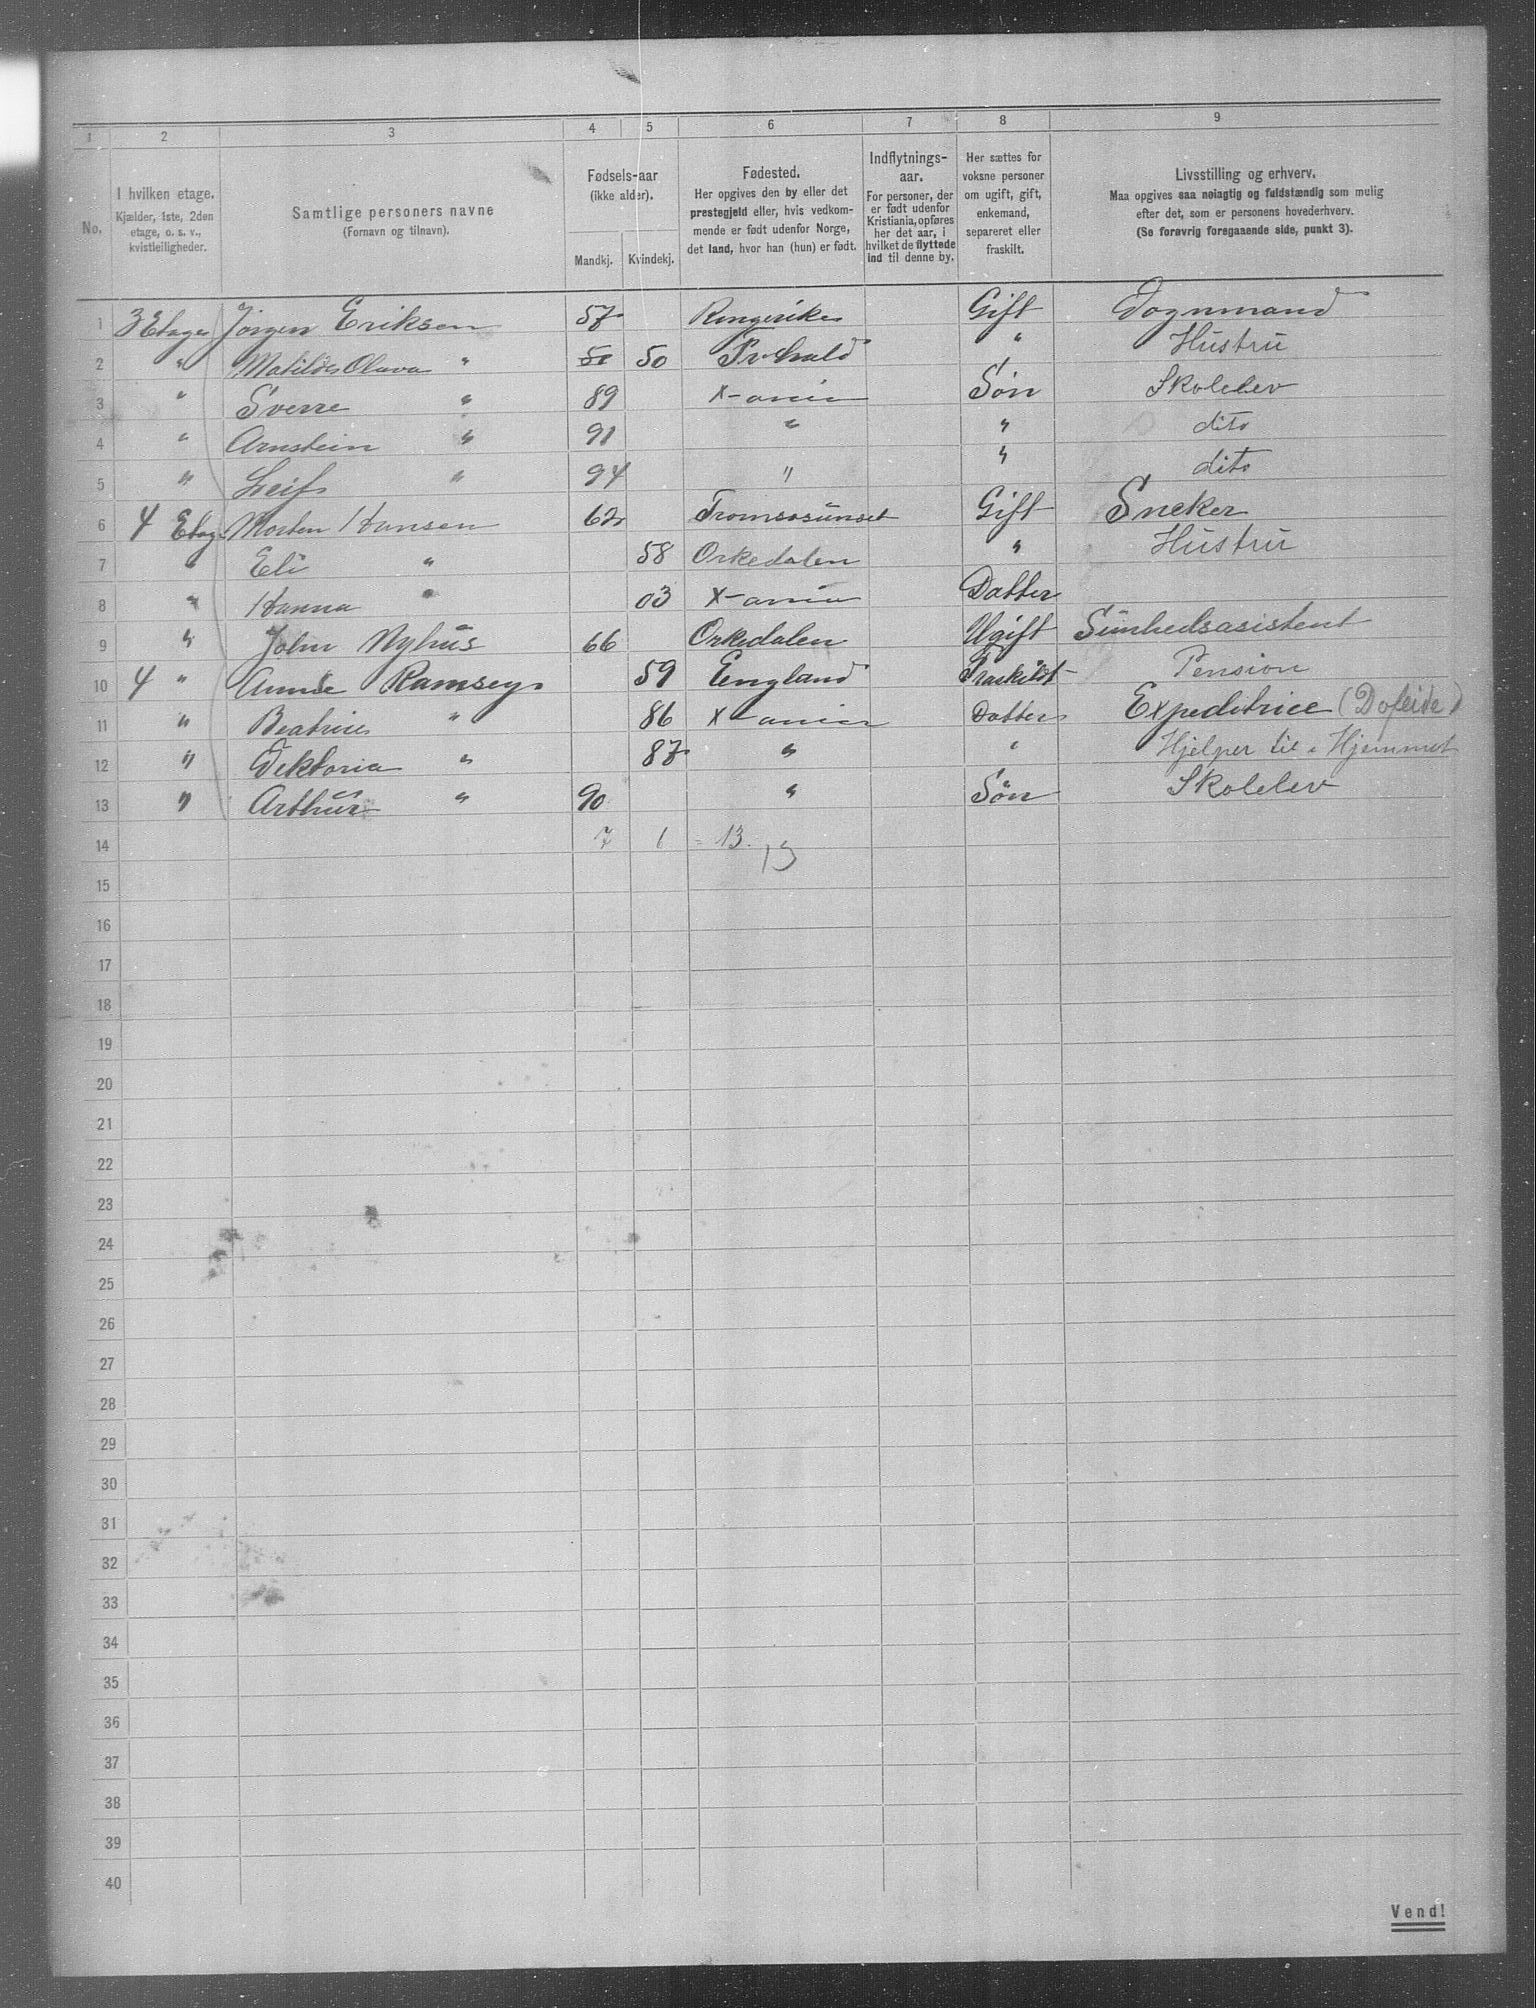 1 2 3 4 5 6 7 8 9
No.
I hvilken etage.
Kjælder, 1ste, 2den
etage, o. s. v.,
kvistleiligheder.
Samtlige personers navne
(Fornavn og tilnavn).
Fødsels-aar
(ikke alder).
Mandkj. Kvindekj.
Fødested.
Her opgives den by eller det
prestegjeld eller, hvis vedkom-
mende er født udenfor Norge,
det land, hvor han (hun) er født.
Indflytnings-
aar.
For personer, der
er født udenfor
Kristiania, opføres
her det aar, i
hvilket de flyttede
ind til denne by.
Her sættes for
voksne personer
om ugift, gift,
enkemand,
separeret eller
fraskilt.
Livsstilling og erhverv.
Maa opgives saa nøiagtig og fuldstændig som mulig
efter det, som er personens hovederhverv.
(Se forøvrig foregaaende side, punkt 3).
1 3 Etage Jørgen Eriksen 57 Ringerike Gift Vognmand
2 " Matilde Olava " 50 50 Fr-hald " Hustru
3 " Sverre " 89 X-ania Søn Skolelev
4 " Arnstein " 91 " " dito
5 " Leif " 94 " " dito
6 4 Etag Morten Hansen 62 Tromsøsundet Gift Sneker
7 " Eli " 58 Orkedalen " Hustru
8 " Hanna " 03 X-ania Datter
9 " John Nyhus 66 Orkedalen Ugift Sunhedsasistent
10 4 " Annie Ramsey 59 England Fraskildt Pension
11 " Beatrice " 86 X-ania Datter Expeditrice
12 " Viktoria " 87 " " Hjelper til i Hjemmet
13 " Arthur " 90 " Søn Skolelev
14 7 6 = 13. 13
15
16
17
18
19
20
21
22
23
24
25
26
27
28
29
30
31
32
33
34
35
36
37
38
39
40
Vend!